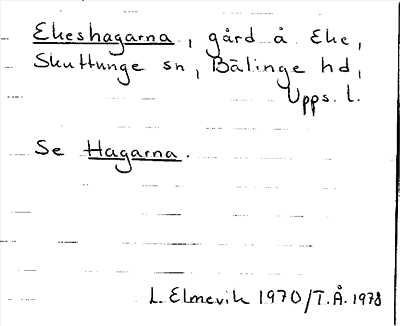 Ekeshagarna, gård å Eke,
Skuttunge sn, Bälinge hd,
Upps. l.
Se Hagarna.
L. Elmevik 1970/T.Å. 1978